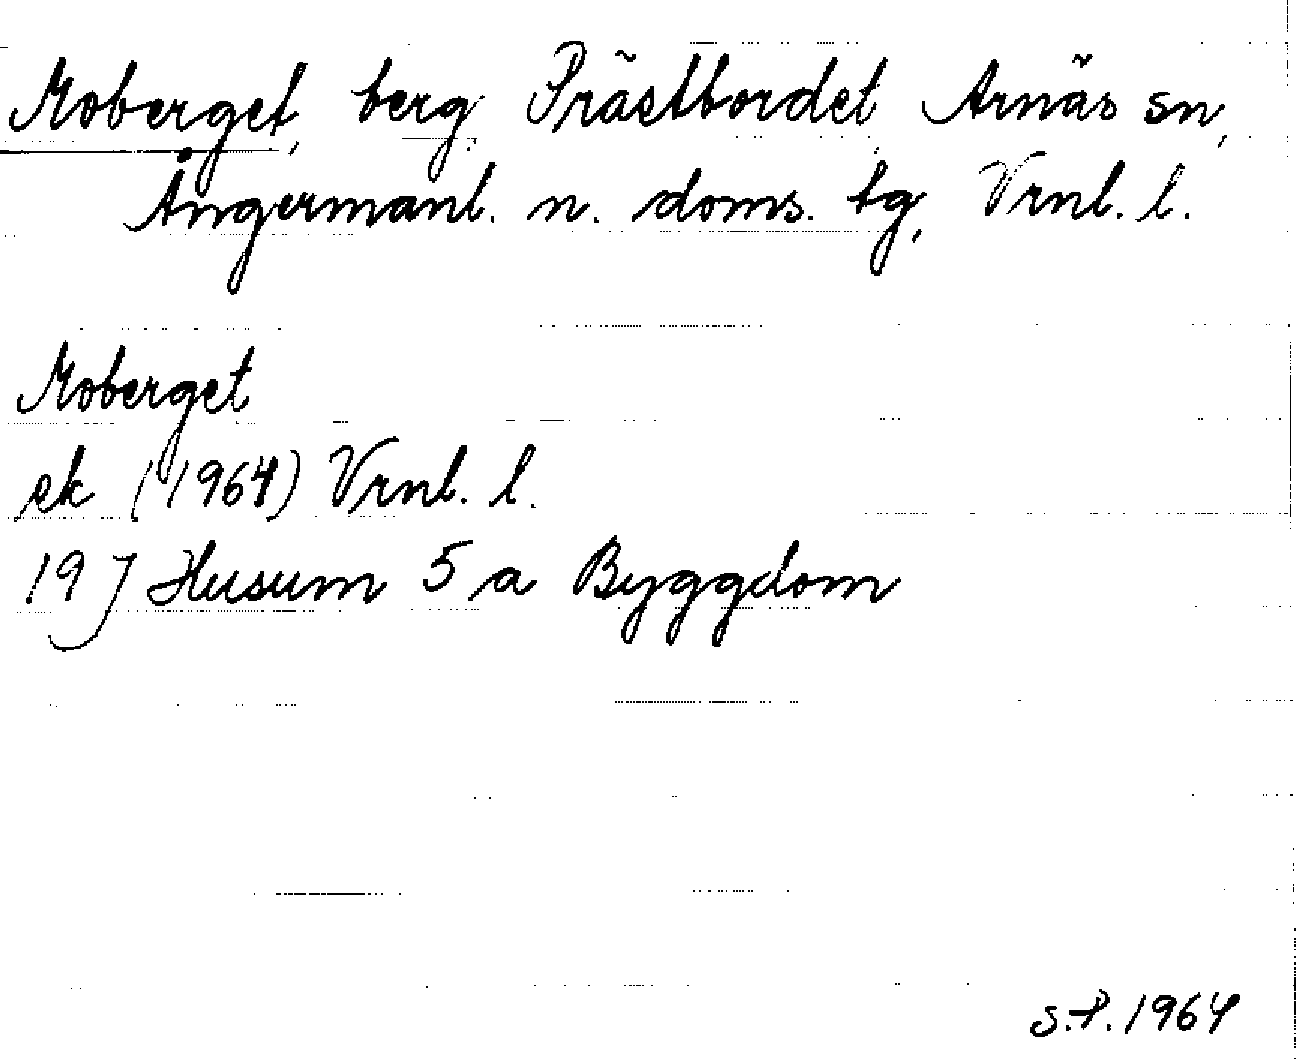 Moberget, berg, Prästbordet, Arnäs sn,
Ångermanl. n. doms. tg, Vrnl. l.
Moberget
ek (1964) Vrnl. l.
19 J Husum 5 a Byggdom
S.P. 1964